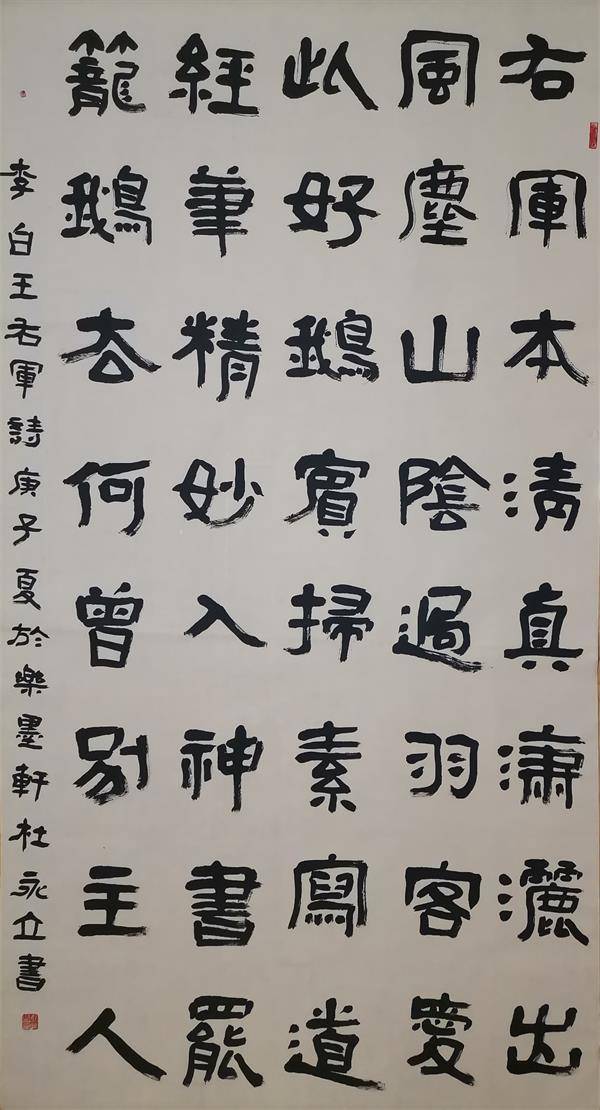 右軍本清真瀟灑出
風塵山陰過羽客愛
此好鵝賓掃素寫道
經筆精妙入神書罷
籠鵝去何曾別主人
李白王右軍詩庚子夏於樂墨軒杜永立書